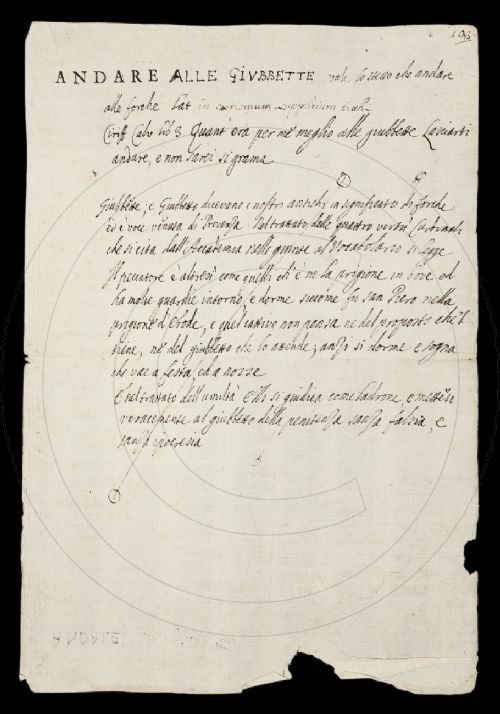 ANDARE ALLE GIVBBETTE vale lo stesso che andare
alle forche Lat in extremum supplicium trahi
Ciriff Calv lib 3. Quant'era per me meglio alle giubbette Lasciarti
andare, e non sarei sì grama
Giubbette, e Giubbetto dicevano i nostri antichi in significato di forche
ed è voce venuta di Provenza Nel trattato delle quattro virtù Cardinali
che si cita dall'Accademia nelle giunte al Vocabolario si legge
Il peccatore è altresì come quelli ch'è ne la prigione in bove ed
ha molte guardie intorno, e dorme siccome fu san Piero nella
prigione d'Erode, e quel cattivo non pensa ne del proposto che 'l
tiene, nè del giubbetto che lo attende; anzi si dorme e sogna
che vae a festa, ed a nozze
E nel trattato dell'umiltà Elli si giudica come ladrone, e mettesi
veracemente al giubbetto della penitenza sanza falsia, e
sanza ipocresia